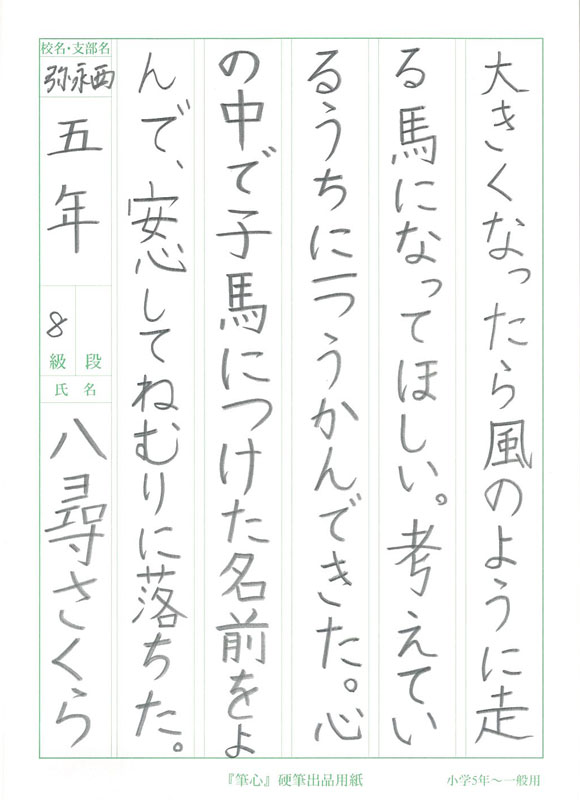 大きくなったら風のように走
る馬になってほしい。考えてい
るうちに一つうかんできた。心
の中で子馬につけた名前をよ
んで、安心してねむりに落ちた。
校名・支部名
弥永西
五年
8
級 段
氏 名
八尋さくら
『筆心』硬筆出品用紙
小学5年〜一般用